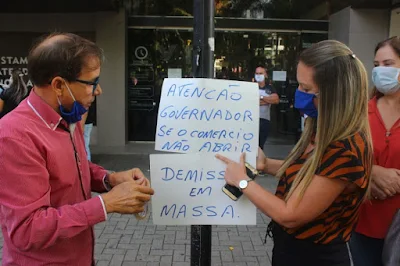 ESTAM
ATENÇÃO
GOVERNADOR
SE O COMERCIO
NÃO ABRIR
DEMISS
EM
MASSA.